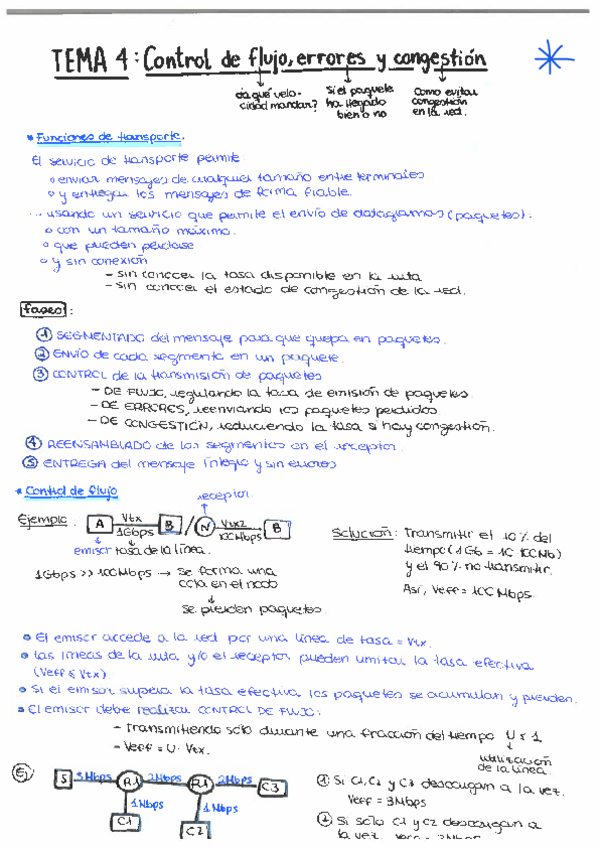 TEMA 4: Control de flujo, errores y congestión
¿a qué velo-
cidad mandar?
Si el paquete
ha llegado
bien o no
Como evitar
congestión
en la red.
* Funciones de transporte.
El servicio de transporte permite:
o enviar mensajes de cualquier tamaño entre terminales
o y entregar los mensajes de forma fiable.
... usando un servicio que permite el envío de datagramas (paquetes):
o con un tamaño máximo.
o que pueden perderse
o y sin conexión
- sin conocer la tasa disponible en la ruta
- sin conocer el estado de congestión de la red.
fases:
① SEGMENTADO del mensaje para que quepa en paquetes.
② ENVÍO de cada segmento en un paquete.
③ CONTROL de la transmisión de paquetes
- DE FLUJO, regulando la tasa de emisión de paquetes.
- DE ERRORES, reenviando los paquetes perdidos
- DE CONGESTIÓN, reduciendo la tasa si hay congestión.
④ REENSAMBLADO de los segmentos en el receptor.
⑤ ENTREGA del mensaje íntegro y sin errores
* Control de flujo
receptor.
Ejemplo: A Vtx 1Gbps B / N Vtx2 100Mbps B
emisor tasa de la línea.
1Gbps >> 100Mbps → se forma una
cola en el nodo
↓
se pierden paquetes.
Solución: Transmitir el 10% del
tiempo (1Gb = 10 100Mb)
y el 90% no transmitir.
Así, Veff = 100 Mbps.
• El emisor accede a la red por una línea de tasa = Vtx.
• Las líneas de la ruta y/o el receptor pueden limitar la tasa efectiva
(Veff ≤ Vtx).
• Si el emisor supera la tasa efectiva los paquetes se acumulan y pierden.
• El emisor debe realizar CONTROL DE FLUJO:
- Transmitiendo sólo durante una fracción del tiempo U ≤ 1
- Veff = U · Vtx.
utilización
de la línea.
Ej/ S 3Mbps R1 2Mbps R1 2Mbps C3
1Mbps 1Mbps
C1
C2
① Si C1, C2 y C3 descargan a la vez.
Veff = 3Mbps
② Si solo C1 y C2 descargan a
la vez, Veff = 2Mbps